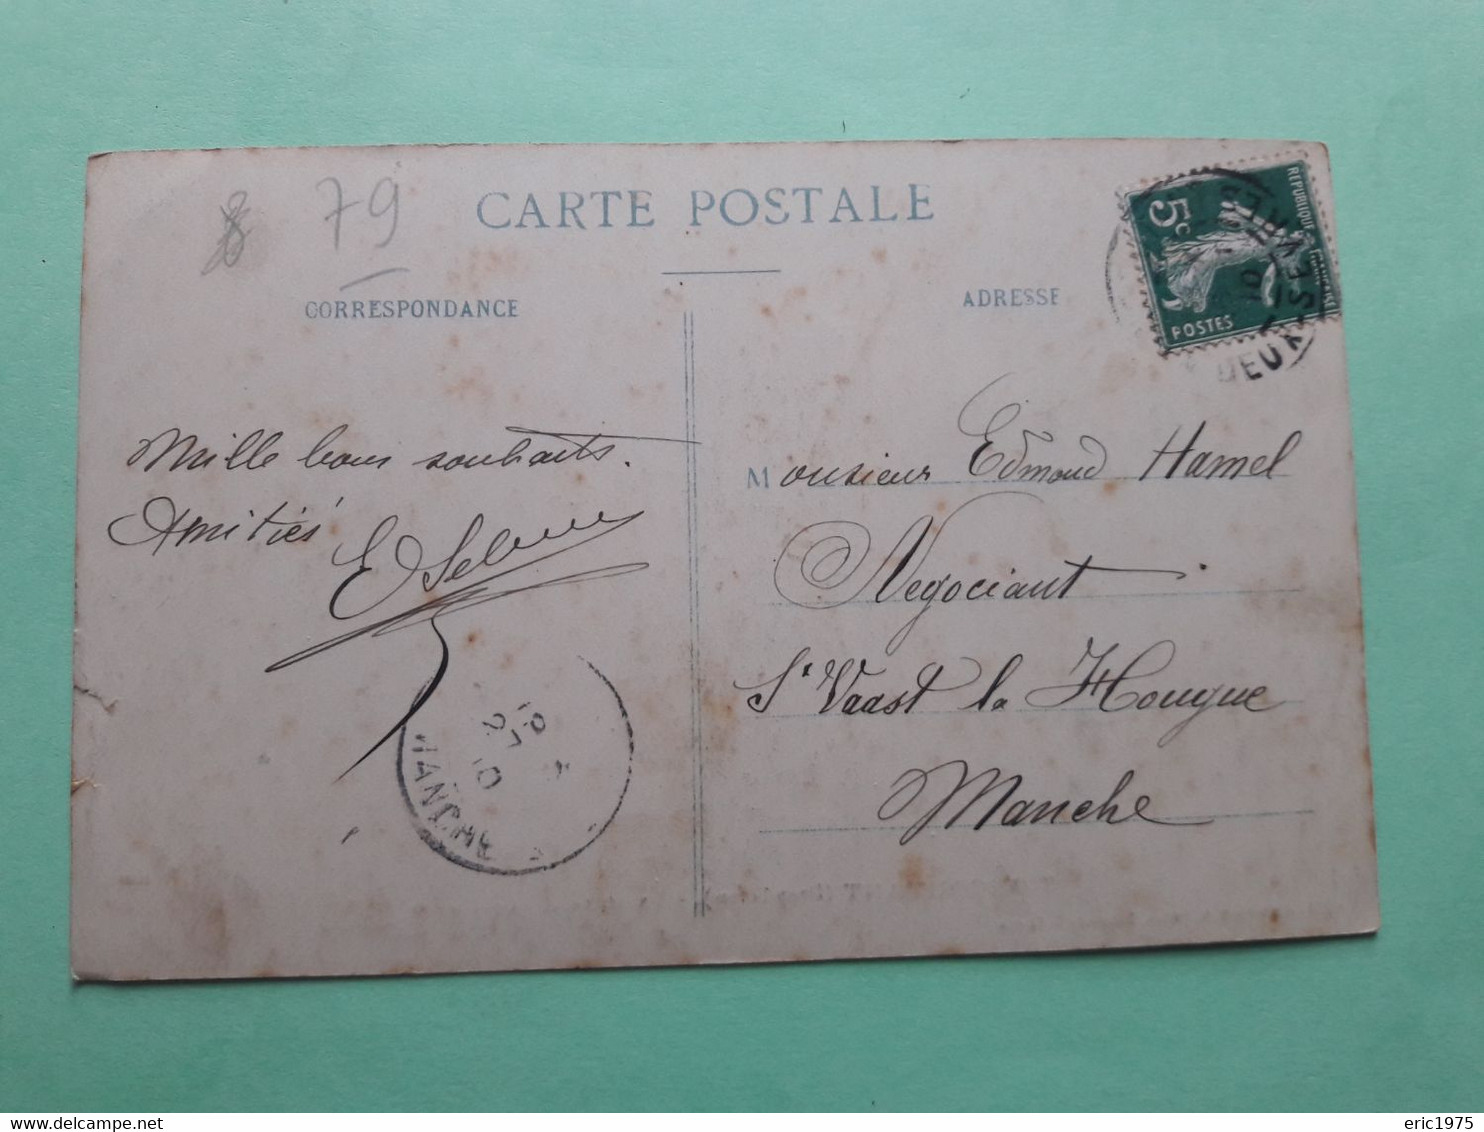 79
CARTE POSTALE
CORRESPONDANCE
ADRESSE
REPUBLIQUE FRANÇAISE
5c
POSTES
DEUX-SEVRES
Mille bons souhaits.
Amitiés
Monsieur Edmond Hamel
Négociant
St Vaast la Hougue
Manche
27
10
MANCHE
eric1975